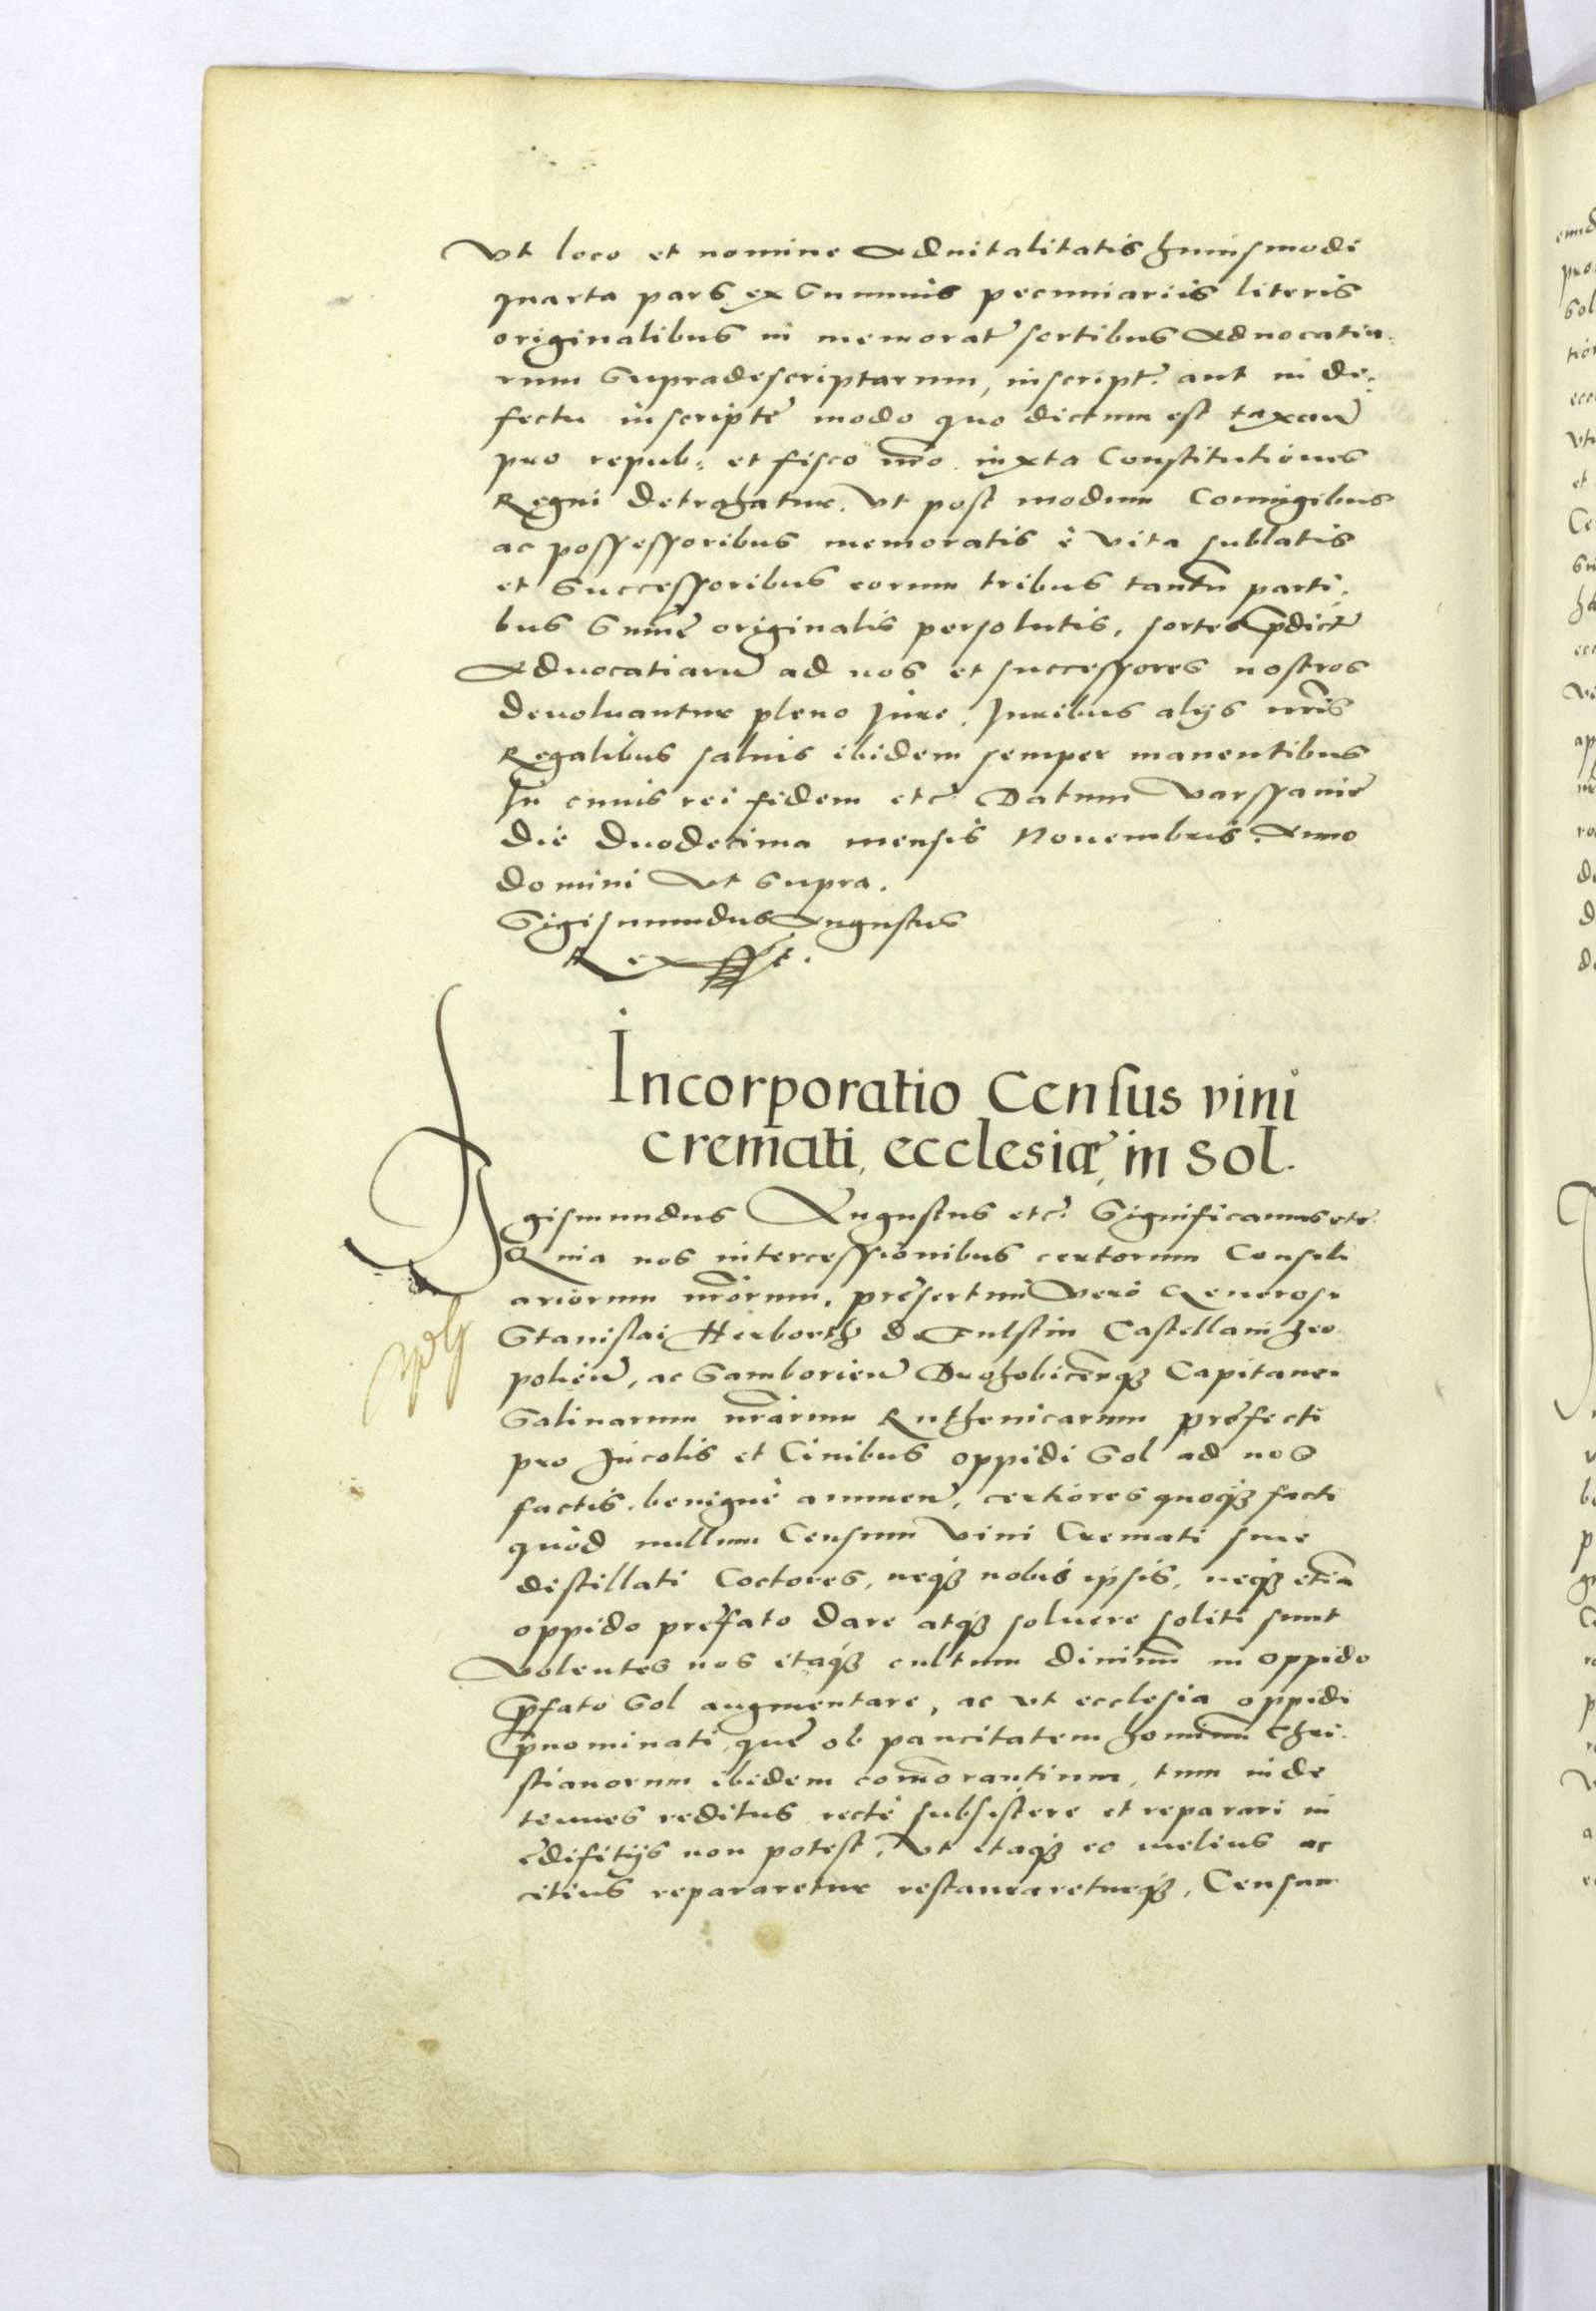 Vt loco et nomine Aduitalitatis huiusmodi
quarta pars ex Summis pecuniariis literis
originalibus in memorat sortibus Aduocatia¬
rum Supradescriptarum, inscript. aut in de¬
fectu inscriptẽ modo quo dictum est taxan̄
pro repub: et fisco nr̄o iuxta Constitutiones
Regni detrahatur. Vt post modum Coniugibus
ac possessoribus memoratis è vita sublatis
et Successoribus eorum tribus tantũ parti¬
bus Sum̃ę originalis persolutis, sortes p̄dict
Aduocatiarũ ad nos et successores nostros
deuoluantur pleno Jure, Juribus alijs nr̄is
Regalibus saluis ibidem semper manentibus
In cuius rei fidem etc̃ Datum Varssauię
die duodecima mensis Nouembris. Anno
domini Vt Supra.
Sigismundus Augustus
Rex sst.
Incorporatio Census vini
cremati, ecclesiæ in Sol.
Sigismundus Augustus etc̃. Significamus etc̃
Quia nos intercessionibus certorum Consili
ariorum nr̄orum, pręsertim Vero Generosi
Stanislai Herborth de Fulstin Castellani Leo
polien̄, ac Samborien̄ Drohobicenq₃ Capitanei
Salinarum nr̄arum Ruthenicarum pręfecti
pro Incolis et Ciuibus oppidi Sol ad nos
factis. benignè annuen̄, certiores quoq₃ facti
quòd nullum Censum Vini Cremati siue
distillati Coctores, neq₃ nobis ipsis, neq₃ etiã
oppido pręfato dare atq₃ soluere soliti sunt
Volentes nos itaq₃ cultum diuinũ in oppido
p̄fato Sol augmentare, ac vt ecclesia oppidi
p̄nominati, quę ob paucitatem hominũ Chri¬
stianorum ibidem com̄orantium, tum inde
tenues reditus rectè subsistere et reparari in
ędifitijs non potest, Vt itaq₃ eo melius ac
citius repararetur restaurareturq₃, Censum